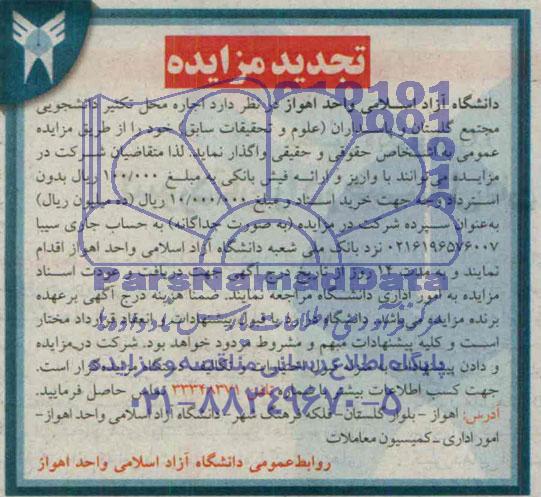 تجدید مزایده
دانشگاه آزاد اسلامی واحد اهواز در نظر دارد اجاره محل تکثیر دانشجویی
مجتمع گلستان و پاسداران (علوم و تحقیقات سابق) خود را از طریق مزایده
عمومی به اشخاص حقوقی و حقیقی واگذار نماید. لذا متقاضیان شرکت در
مزایده می توانند با واریز و ارائه فیش بانکی به مبلغ ۱۰۰/۰۰۰ ریال بدون
استرداد وجه جهت خرید اسناد و مبلغ ۱۰/۰۰۰/۰۰۰ ریال (ده میلیون ریال)
به‌عنوان سپرده شرکت در مزایده (به صورت جداگانه) به حساب جاری سیبا
۰۲۱۶۱۹۶۵۷۶۰۰۷ نزد بانک ملی شعبه دانشگاه آزاد اسلامی واحد اهواز اقدام
نمایند و به مدت ۱۴ روز از تاریخ درج آگهی جهت دریافت و عودت اسناد
مزایده به امور اداری دانشگاه مراجعه نمایند. ضمناً هزینه درج آگهی برعهده
برنده مزایده می باشد. دانشگاه در رد یا قبول پیشنهادات و انعقاد قرارداد مختار
است و کلیه پیشنهادات مبهم و مشروط مردود خواهد بود. شرکت در مزایده
و دادن پیشنهاد به منزله قبول اختیارات و تکالیف دستگاه مزایده گزار است.
جهت کسب اطلاعات بیشتر با شماره تلفن ۳۳۳۴۸۳۷۱ تماس حاصل فرمایید.
آدرس: اهواز - بلوار گلستان - فلکه فرهنگ شهر - دانشگاه آزاد اسلامی واحد اهواز -
امور اداری - کمیسیون معاملات
روابط عمومی دانشگاه آزاد اسلامی واحد اهواز
ParsNamadData
پایگاه اطلاع رسانی مناقصه و مزایده
۰۲۱-۸۸۳۴۹۶۷۰-۵